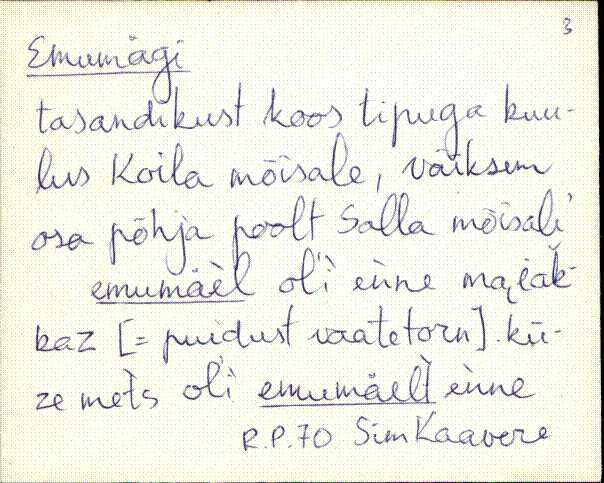 3
Emumägi
tasandikust koos tipuga kuu-
lus Koila mõisale, väiksem
osa põhja poolt Salla mõisale
emumäèl ol'ì enne majak-
kaz [= puidust vaatetorn]. kü-
ze mets ol'i emumäel enne
R.P.70 Simkaavere